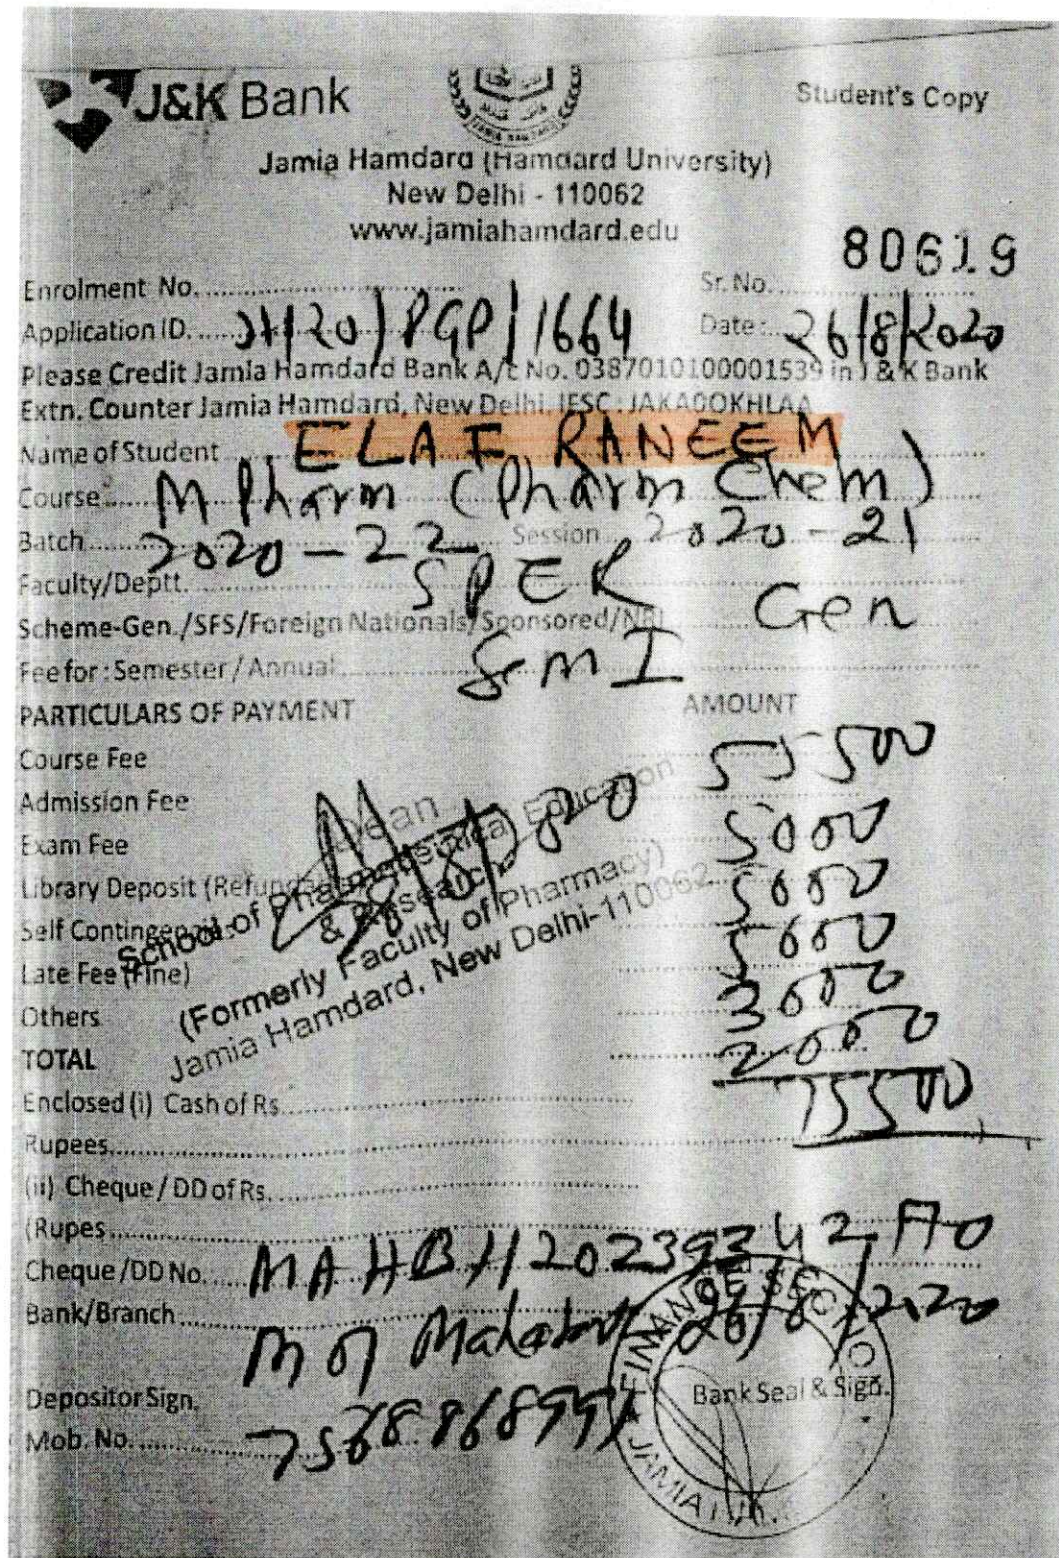 J&K Bank
Student's Copy
Jamia Hamdard (Hamdard University)
New Delhi - 110062
www.jamiahamdard.edu
80619
Enrolment No.
Sr. No.
Application ID. JH/20/PGP/1664 Date: 26/8/2020
Please Credit Jamia Hamdard Bank A/c No. 0387010100001539 in J & K Bank
Extn. Counter Jamia Hamdard, New Delhi. IFSC: JAKA0OKHLAA
Name of Student ELAF RANEEM
Course M Pharm (Pharm Chem)
Batch 2020-22 Session 2020-21
Faculty/Deptt. SPER
Scheme-Gen./SFS/Foreign Nationals/Sponsored/NRI Gen
Fee for: Semester / Annual Sem I
PARTICULARS OF PAYMENT AMOUNT
Course Fee 55500
Admission Fee 5000
Exam Fee 5000
Library Deposit 5000
Self Contingencies 3000
Late Fee (Fine) 2000
Others
TOTAL 75500
Dean
School of Pharmaceutical Education
& Research
(Formerly Faculty of Pharmacy)
Jamia Hamdard, New Delhi-110062
Enclosed (i) Cash of Rs.
Rupees
(ii) Cheque / DD of Rs.
(Rupes
Cheque/DD No. MAHBH20239342170
Bank/Branch 26/8/2020
Depositor Sign.
Bank Seal & Sign.
Mob. No.
FINANCE SECTION
JAMIA